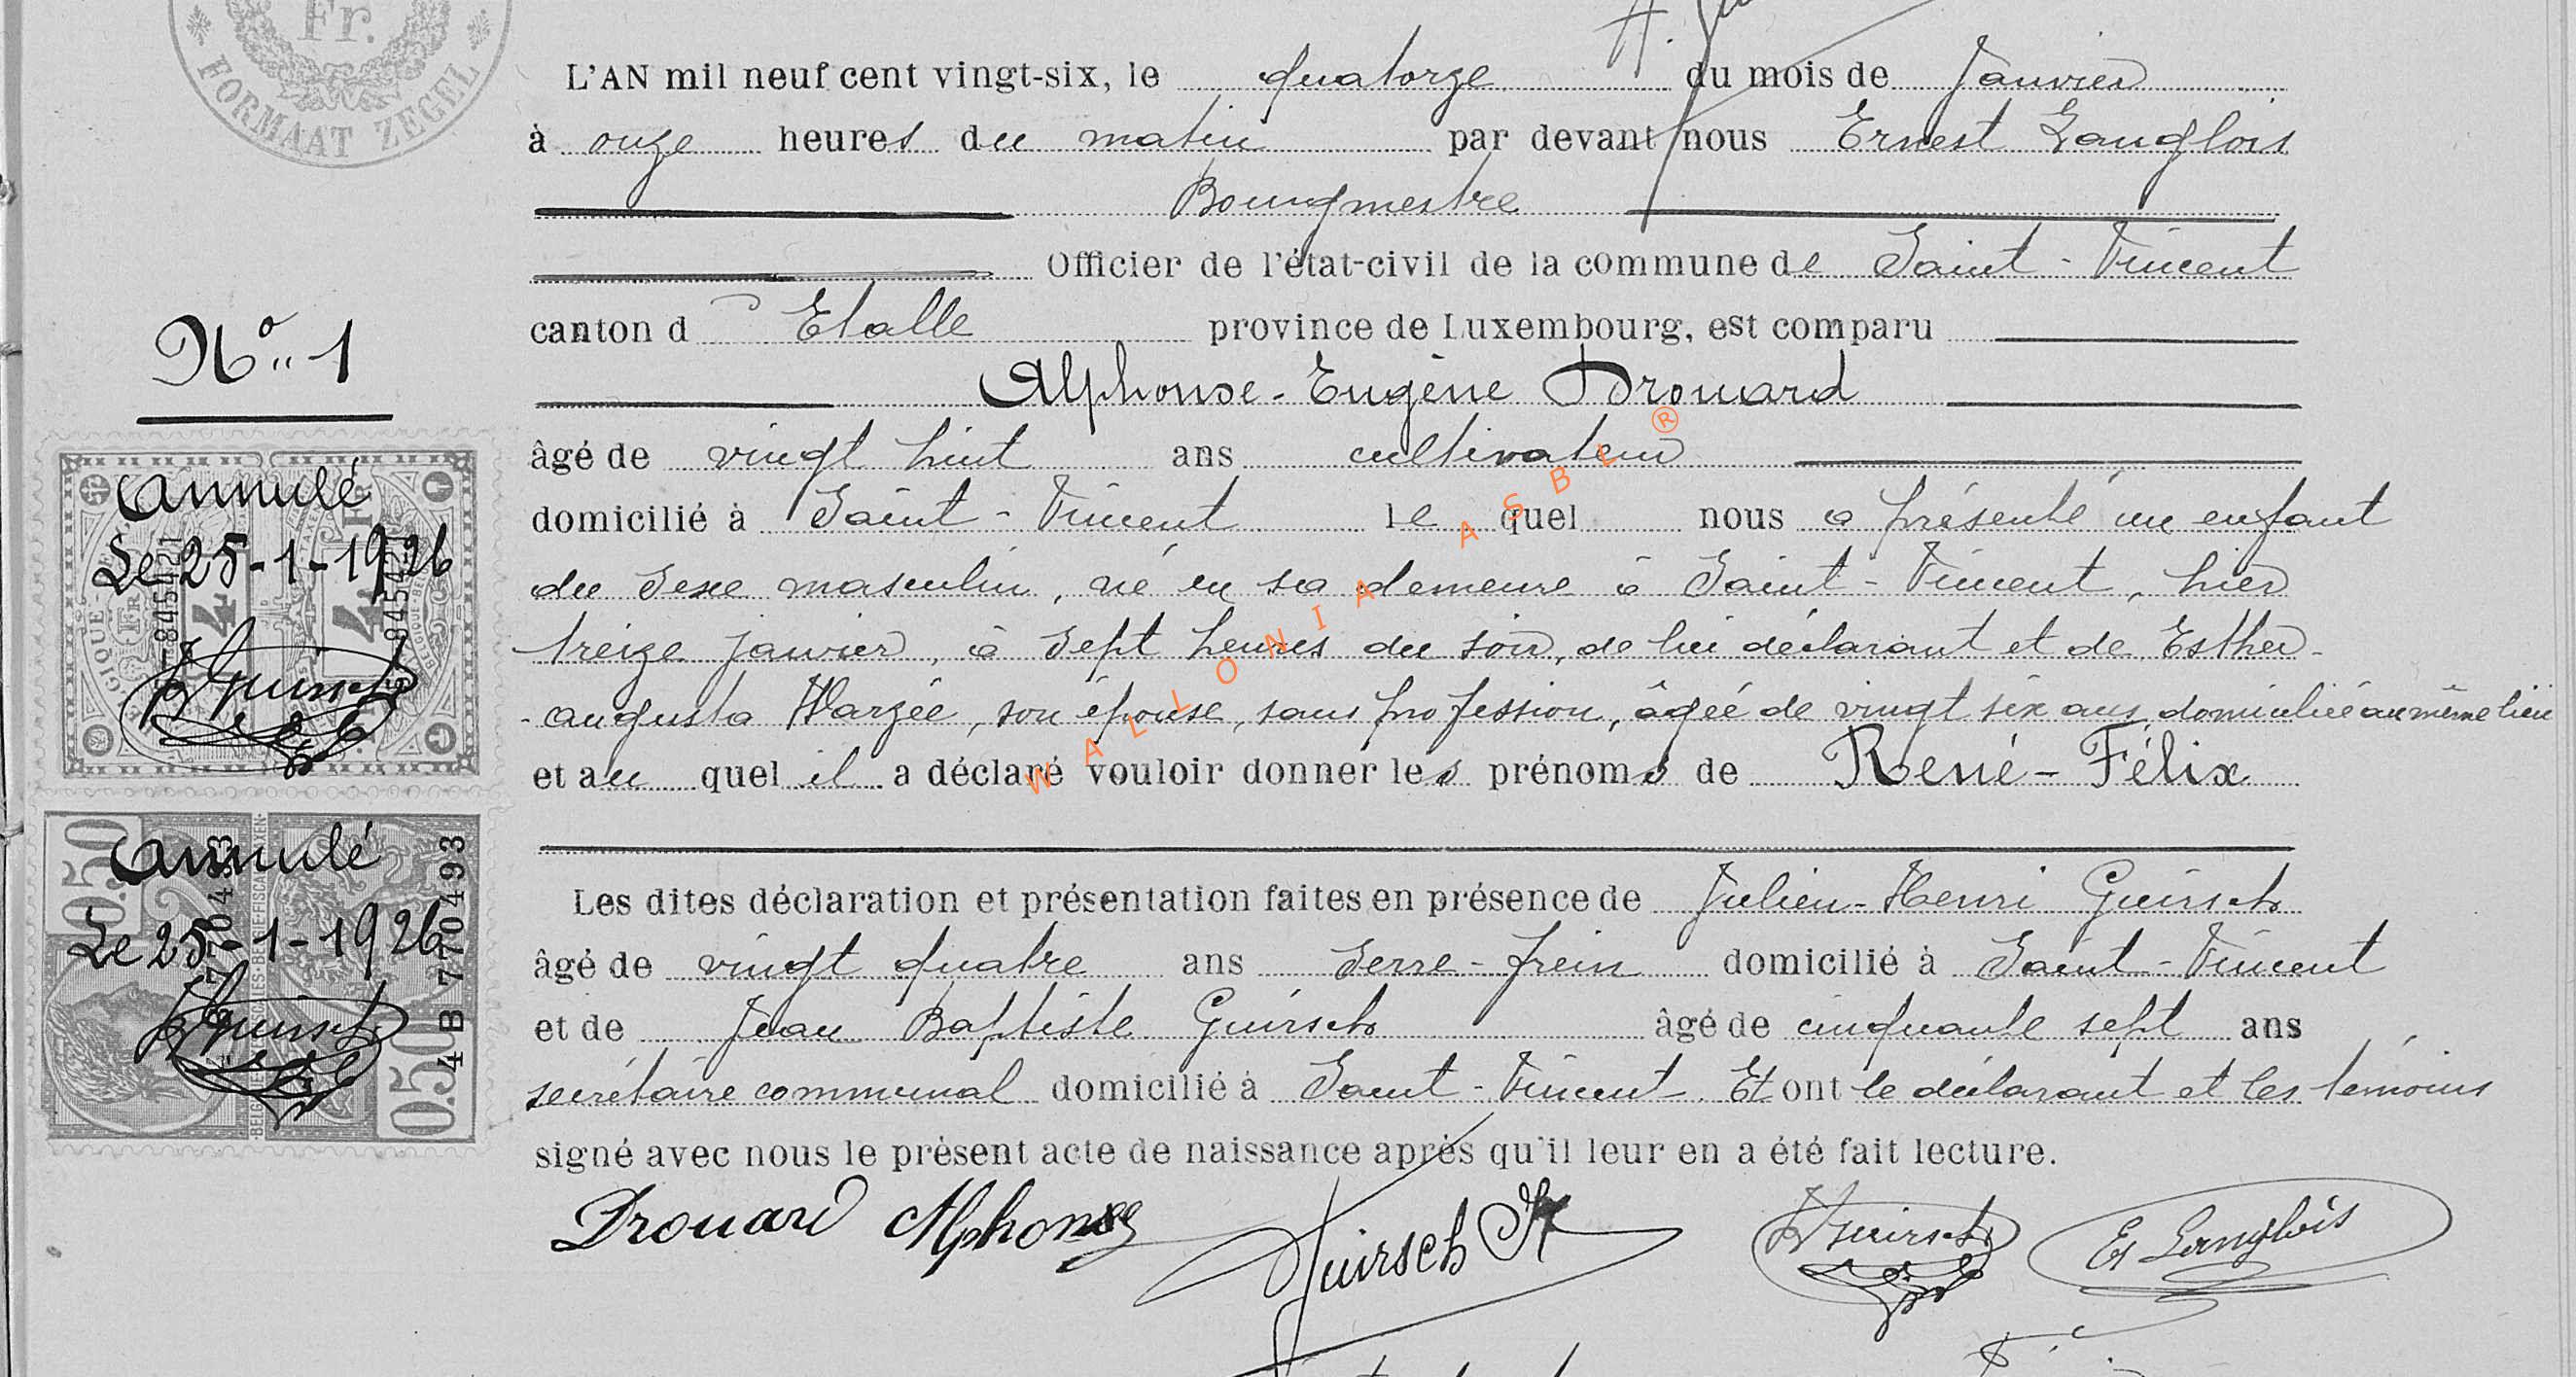 Fr.
FORMAAT ZEGEL
L'AN mil neuf cent vingt-six, le quatorze du mois de Janvier
à onze heures du matin par devant nous Ernest Langlois
Bourgmestre
Officier de l'état-civil de la commune de Saint-Vincent
canton d'Etalle province de Luxembourg, est comparu
N° 1
Alphonse-Eugène Drouard
âgé de vingt huit ans cultivateur
domicilié à Saint-Vincent lequel nous a présenté un enfant
du sexe masculin, né en sa demeure à Saint-Vincent, hier
treize janvier, à sept heures du soir, de lui déclarant et de Esther-
-augusta Warzée, son épouse, sans profession, âgée de vingt six ans, domiciliée au même lieu
et au quel il a déclaré vouloir donner les prénoms de René-Félix
Les dites déclaration et présentation faites en présence de Julien-Henri Guirsch
âgé de vingt quatre ans serre-frein domicilié à Saint-Vincent
et de Jean Baptiste Guirsch âgé de cinquante sept ans
secrétaire communal domicilié à Saint-Vincent. Et ont le déclarant et les témoins
signé avec nous le présent acte de naissance après qu'il leur en a été fait lecture.
Drouard Alphonse Guirsch JBGuirsch Et Langlois
annulé
Le 25-1-1926
JBGuirsch
annulé
Le 25-1-1926
JBGuirsch
0.50
0.50
4B 770493
WALLONIA ASBL ®